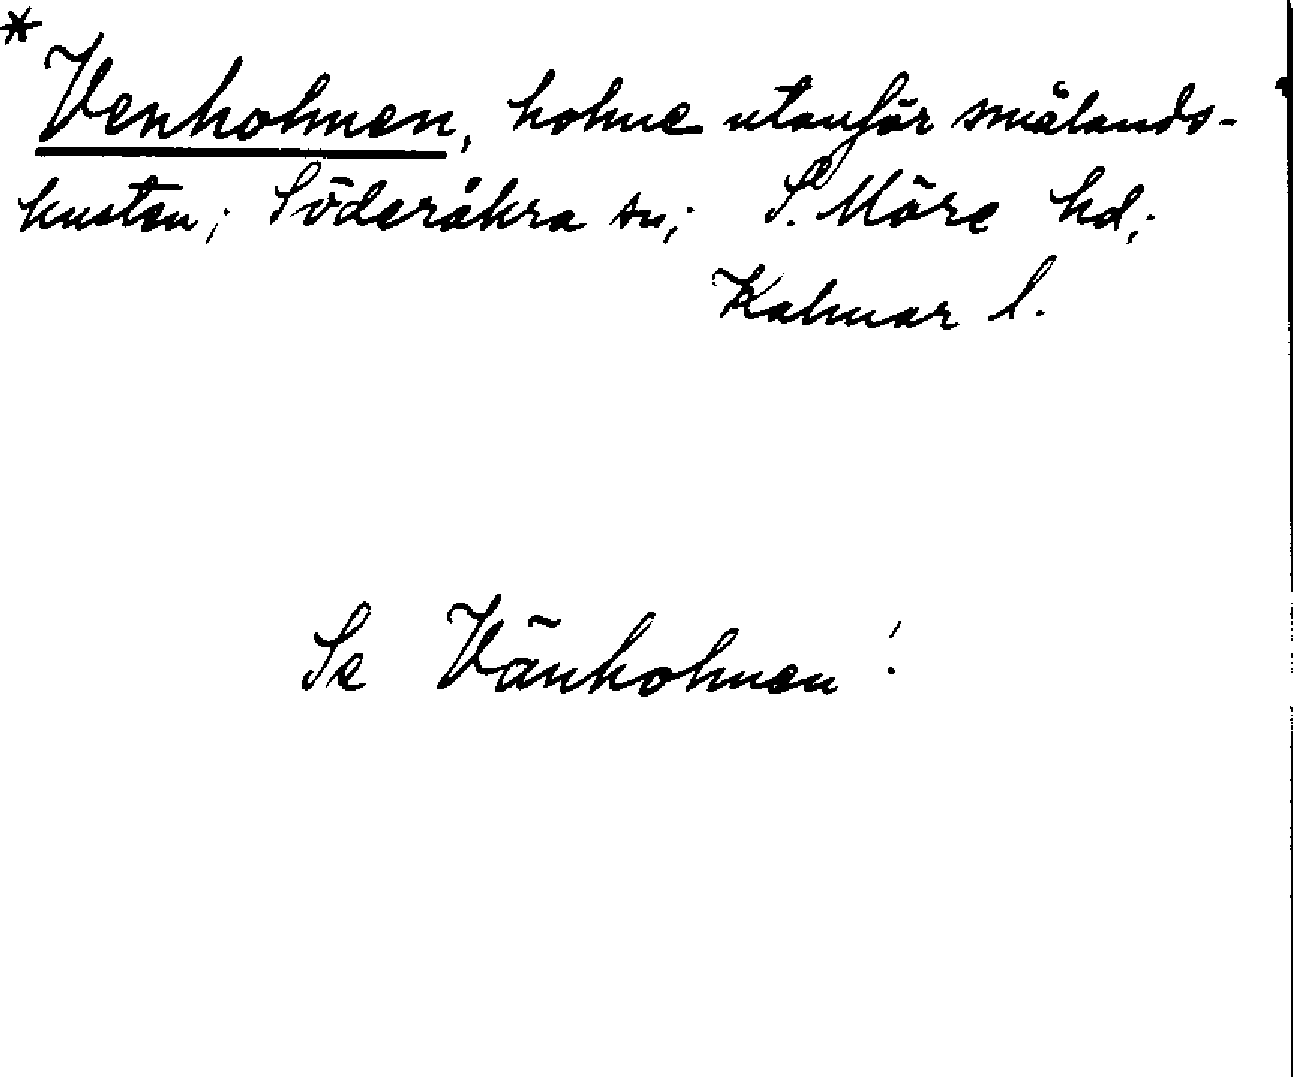 *
Venholmen, holme utanför smålands-
kusten; Söderåkra sn; S. Möre hd;
Kalmar l.
Se Vänholmen!